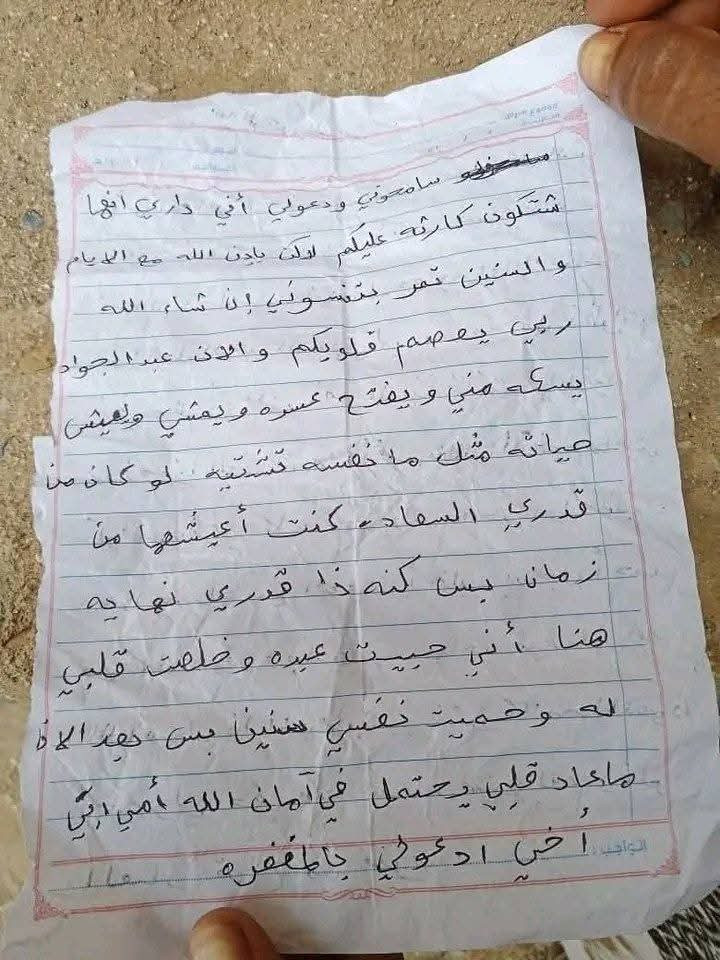 سامحوني ودعولي أني داري انها
شتكون كارثه عليكم لاكن بإذن الله مع الايام
والسنين تمر بتنسوني إن شاء الله
ربي يعصم قلوبكم والان عبدالجواد
يسكه مني ويفتح عسره ويمشي ويعيش
حياته مثل ما نفسه تشتيه لو كان من
قدري السعاده كنت أعيشها من
زمان بس كنه ذا قدري نهايه
هنا أني حبيت عبده وخلصت قلبي
له وحميت نفسي سنين بس بعد الان
ماعاد قلبي يحتمل في آمان الله أمي ابي
أخي ادعولي بالمغفره
الواجب: